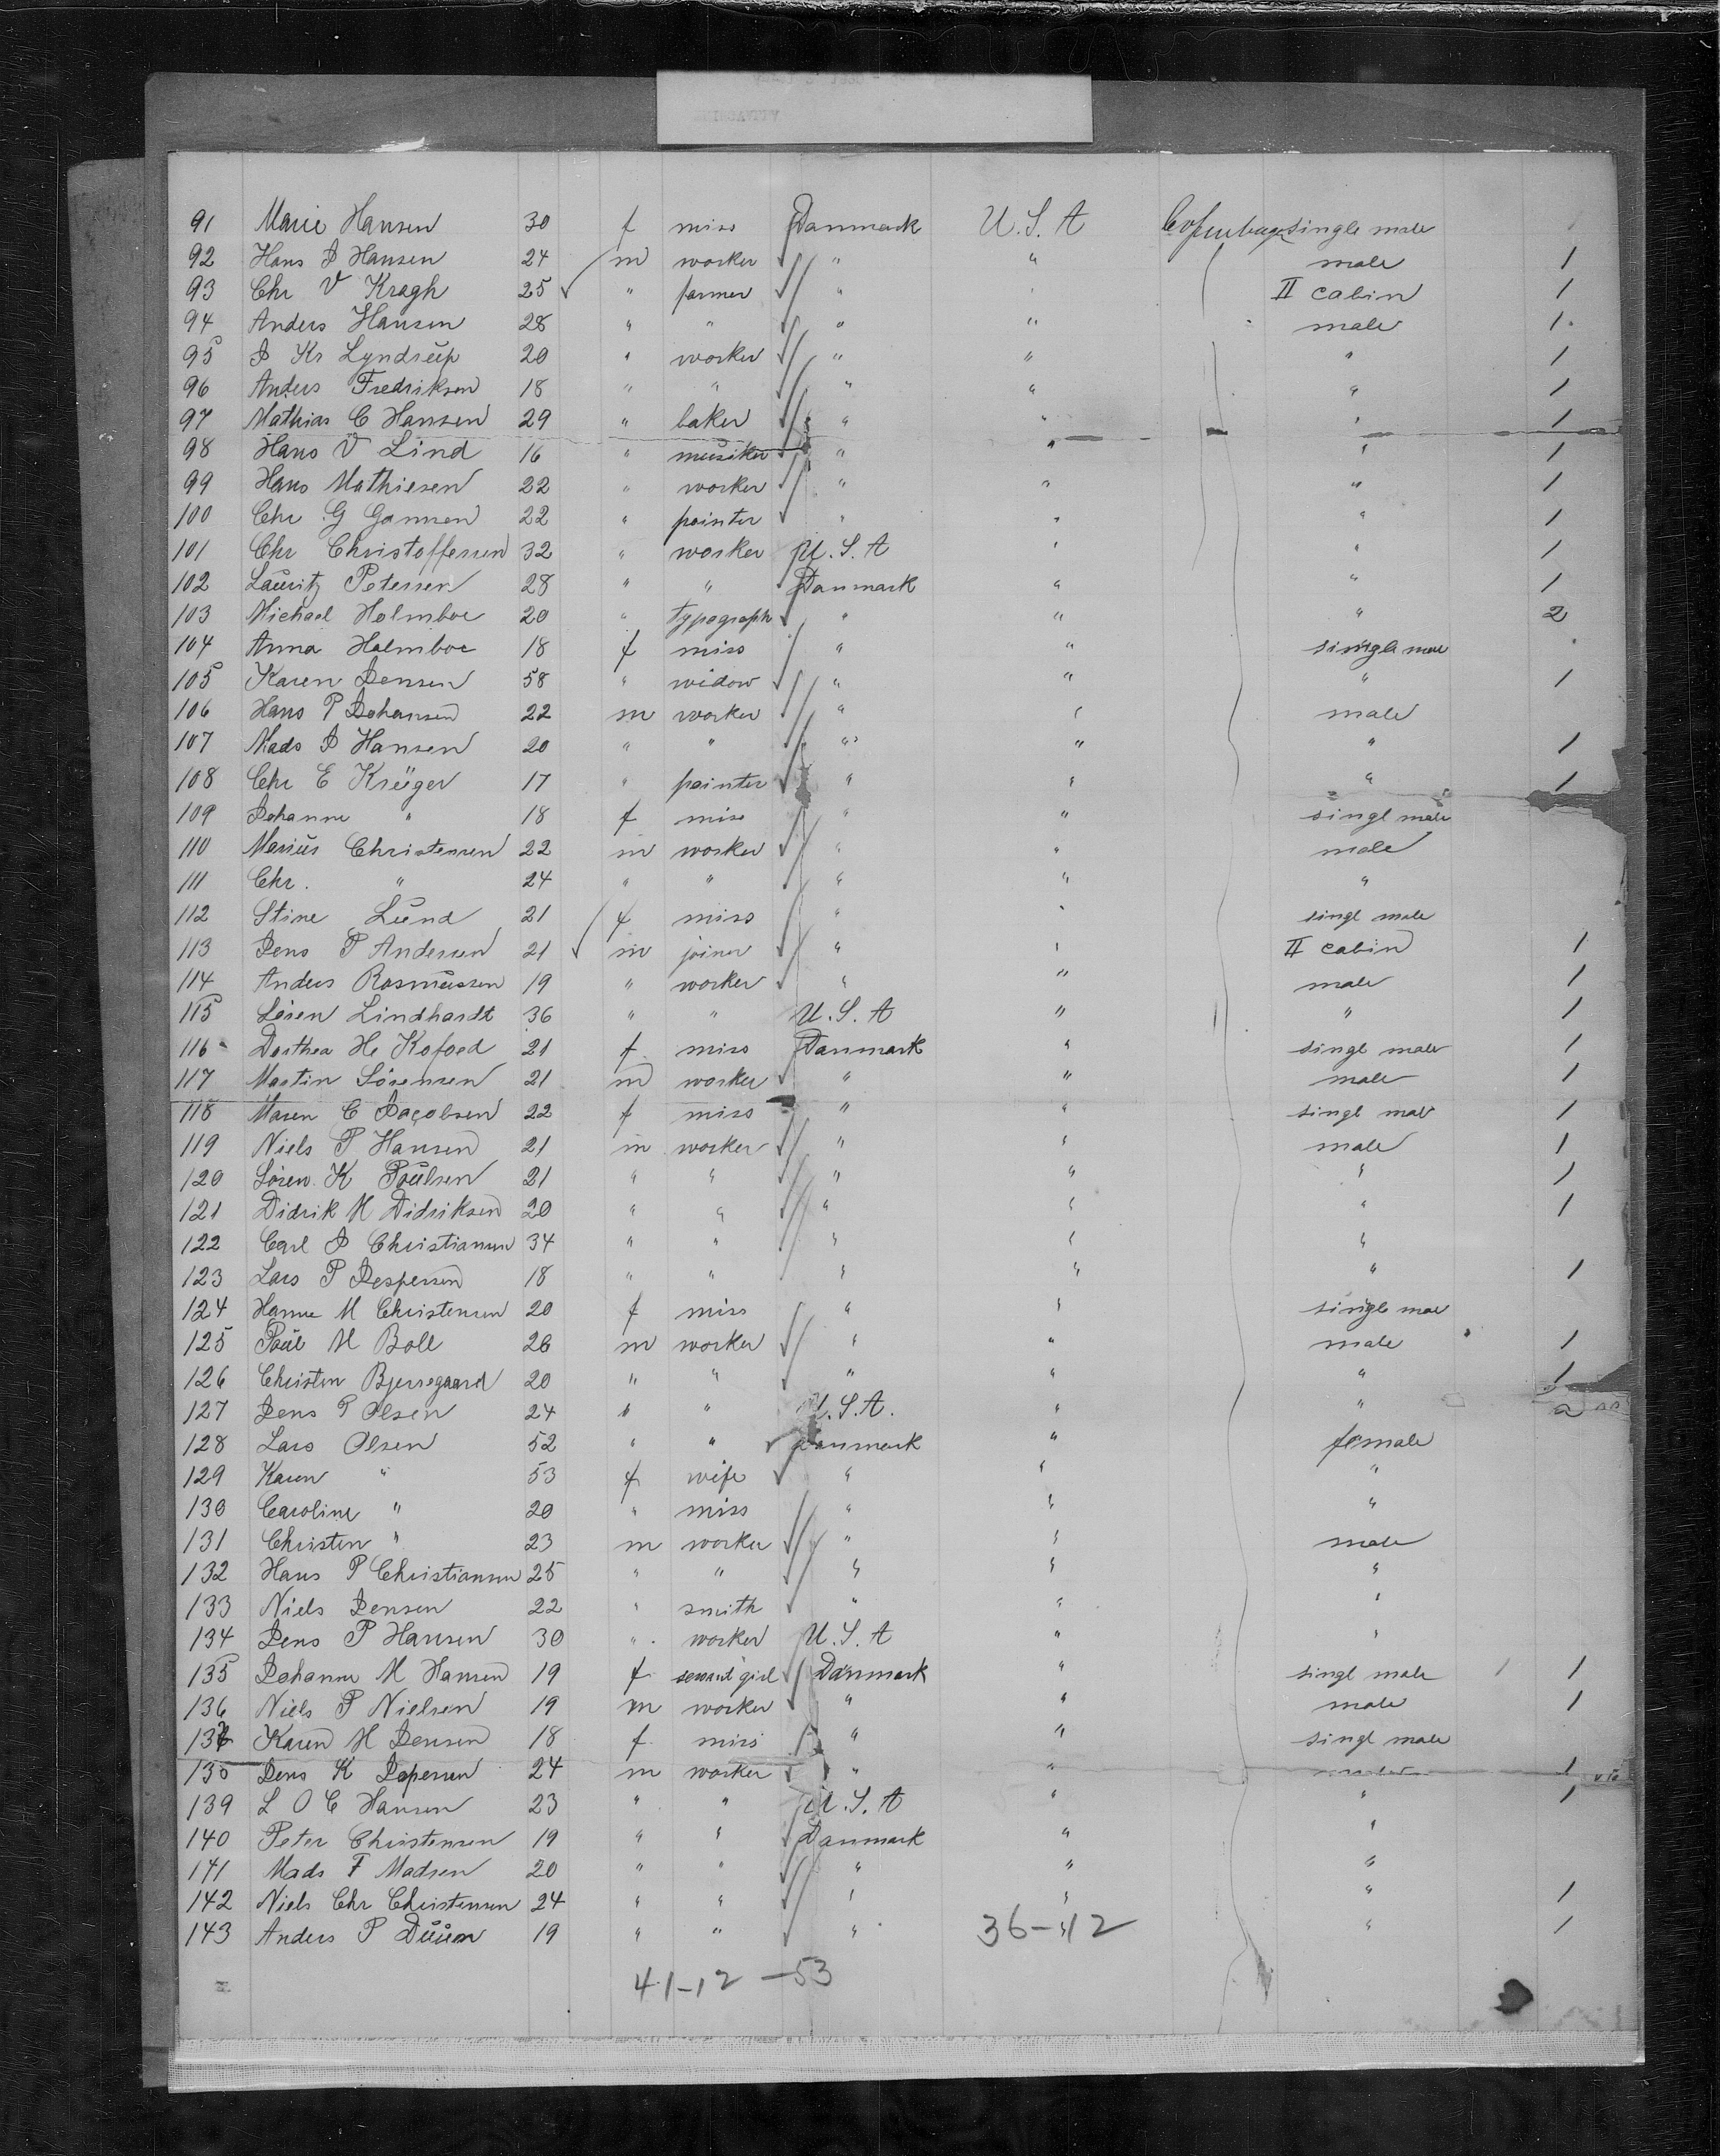 91 Marie Hansen 30 f miss Danmark U.S.A Copenhagen single male
92 Hans J Hansen 24 m worker " " male 1
93 Chr V Kragh 25 " farmer " " II cabin 1
94 Anders Hansen 28 " " " " male 1
95 J Kr Lyndrup 20 " worker " " " 1
96 Anders Fredriksen 18 " " " " " 1
97 Mathias C Hansen 29 " baker " " " 1
98 Hans V Lind 16 " musiker " " " 1
99 Hans Mathiesen 22 " worker " " " 1
100 Chr G 22 " painter " " " 1
101 Chr Christoffersen 32 " worker U.S.A " " 1
102 Lauritz Petersen 28 " " Danmark " " 1
103 Michael Holmboe 20 " typograph " " " 2
104 Anna Holmboe 18 f miss " " single male
105 Karen Jensen 58 " widow " " " 1
106 Hans P Johansen 22 m worker " " male
107 Mads J Hansen 20 " " " " " 1
108 Chr E Krüger 17 " painter " " " 1
109 Johanne " 18 f miss " " singl male
110 Marius Christensen 22 m worker " " male
111 Chr. " 24 " " " " "
112 Stine Lund 21 f miss " " singl male
113 Jens P Andersen 21 m joiner " " II cabin 1
114 Anders Rasmussen 19 " worker " " male 1
115 Sören Lindhardt 36 " " U.S.A " " 1
116 Dorthea He Kofoed 21 f miss Danmark " singl male 1
117 Martin Sörensen 21 m worker " " male 1
118 Maren C Jacobsen 22 f miss " " singl male 1
119 Niels P Hansen 21 m worker " " male 1
120 Sören K Poulsen 21 " " " " " 1
121 Didrik M Didriksen 20 " " " " " 1
122 Carl J Christiansen 34 " " " " "
123 Lars P Jespersen 18 " " " " " 1
124 Hanne M Christensen 20 f miss " " single male
125 Poul M Boll 26 m worker " " male 1
126 Christen Bjerregaard 20 " " " " " 1
127 Jens P Olsen 24 " " U.S.A. " "
128 Lars Olsen 52 " " Danmark " female
129 Karen " 53 f wife " " "
130 Caroline " 20 " miss " " "
131 Christen " 23 m worker " " male
132 Hans P Christiansen 25 " " " " "
133 Niels Jensen 22 " smith " " "
134 Jens P Hansen 30 " worker U.S.A " "
135 Johanne M Hansen 19 f servant girl Danmark " singl male 1 1
136 Niels P Nielsen 19 m worker " " male 1
137 Karen M Jensen 18 f miss " " singl male
138 Jens K Jepersen 24 m worker " " 1
139 L O C Hansen 23 " " U.S.A " " 1
140 Peter Christensen 19 " " Danmark " "
141 Mads F Madsen 20 " " " " "
142 Niels Chr Christensen 24 " " " " " 1
143 Anders P Duun 19 " " " " " 1
36-12
41-12-53